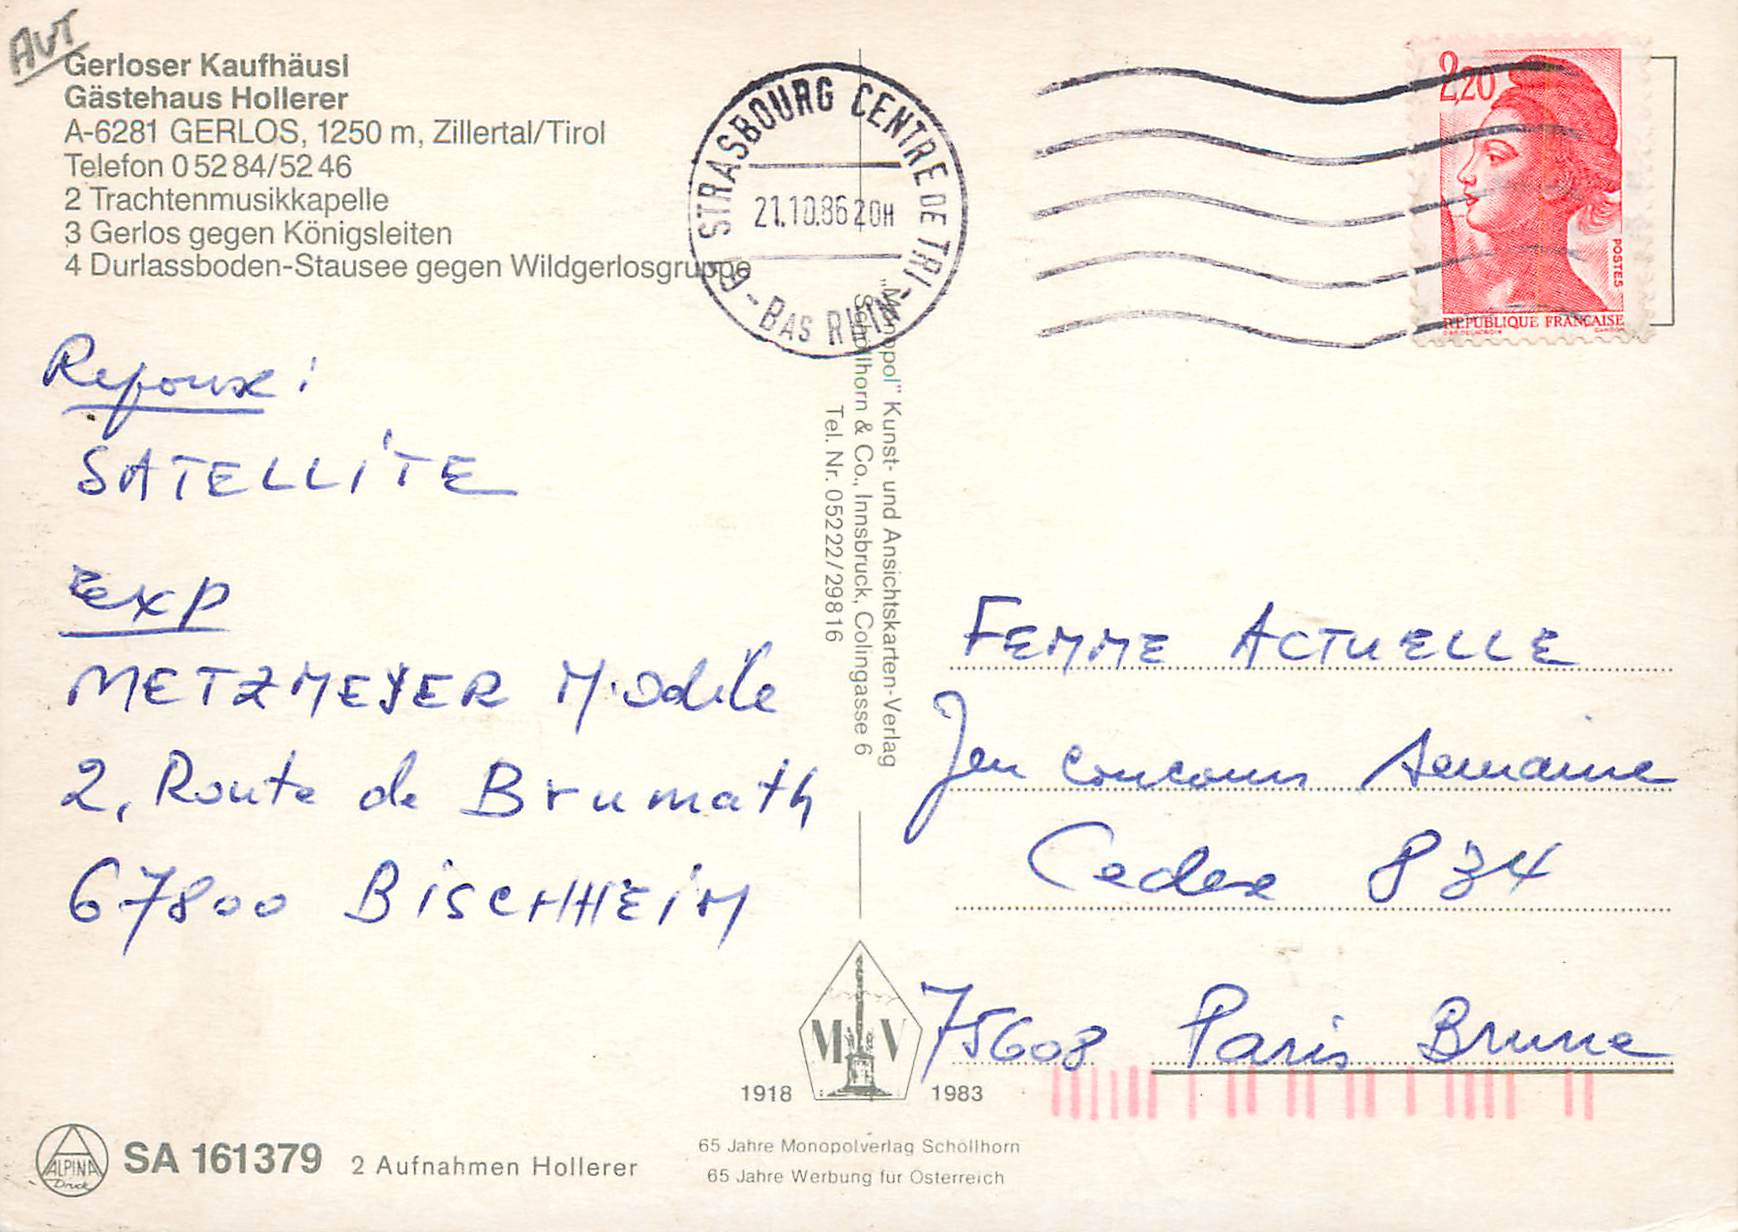 AUT
Gerloser Kaufhäusl
Gästehaus Hollerer
A-6281 GERLOS, 1250 m, Zillertal/Tirol
Telefon 0 52 84/52 46
2 Trachtenmusikkapelle
3 Gerlos gegen Königsleiten
4 Durlassboden-Stausee gegen Wildgerlosgruppe
STRASBOURG CENTRE DE TRI - BAS RHIN -
21.10.86 20H
2,20
POSTES
REPUBLIQUE FRANÇAISE
SATELLITE
exp
METZMEYER M. Odile
2, Route de Brumath
67800 BISCHHEIM
"Monopol" Kunst- und Ansichtskarten-Verlag
Schöllhorn & Co., Innsbruck, Colingasse 6
Tel. Nr. 05222/29816
FEMME ACTUELLE
Jeu concours Semaine
Cedex 834
75608 Paris Brune
M V
1918 1983
65 Jahre Monopolverlag Schöllhorn
65 Jahre Werbung für Österreich
ALPINA
Druck
SA 161379 2 Aufnahmen Hollerer